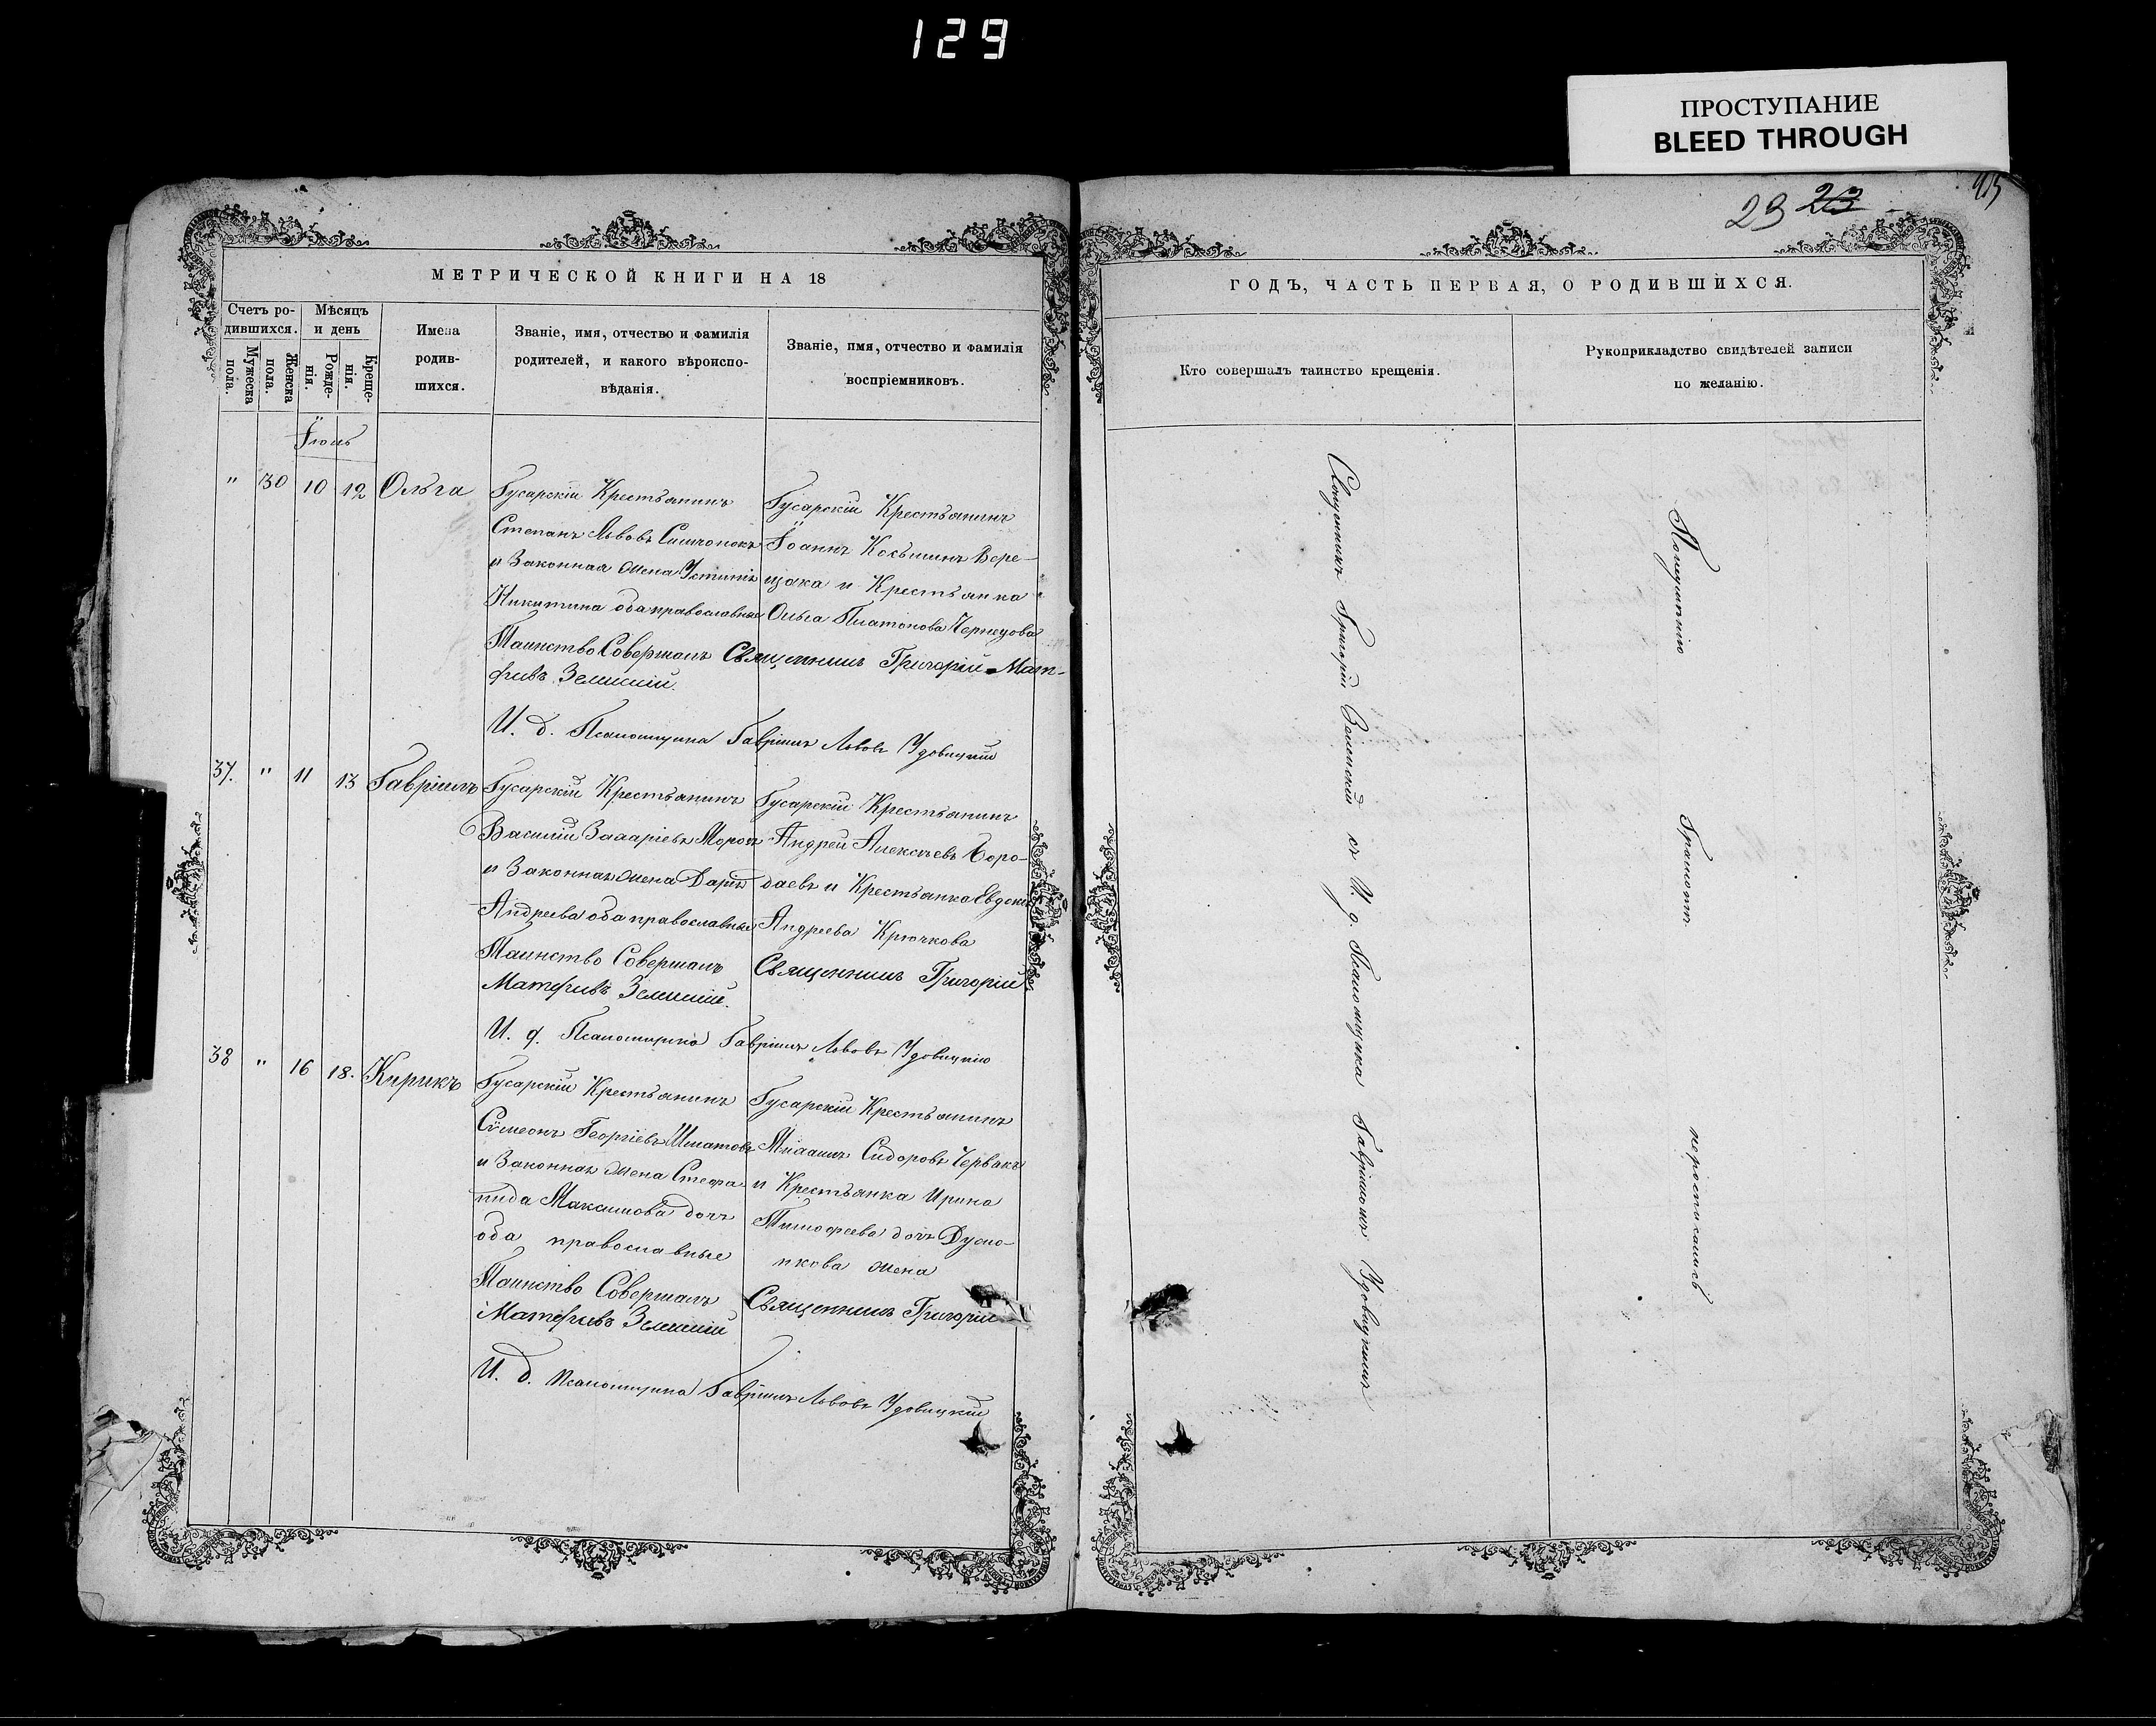 129
ПРОСТУПАНИЕ
BLEED THROUGH
29 23
МЕТРИЧЕСКОЙ КНИГИ НА 18
Счетъ ро-
дившихся.
Мужеска
пола.
Женска
пола.
Мѣсяцъ
и день
Рожде-
нія.
Креще-
нія.
Имена
родив-
шихся.
Званіе, имя, отчество и фамилія
родителей, и какого вѣроиспо-
вѣданія.
Званіе, имя, отчество и фамилія
воспріемниковъ.
" 30 10 12 Ольга
Гусарскій Крестьянинъ
Степанъ Львовъ
и Законная жена
Никитина оба православные
Гусарскій Крестьянинъ
Іоаннъ Косьминъ Вере-
щака и Крестьянка
Ольга Платонова Чернецова
Таинство Совершалъ Священникъ Григорій Мат-
фіевъ Зелинскій.
И. д. Псаломщика Гавріилъ Львовъ Удовицкій
37. " 11 13 Гавріилъ
Гусарскій Крестьянинъ
Василій Захаріевъ Мороз
и Законная жена Дарія
Андреева оба православные
Гусарскій Крестьянинъ
Андрей Алексѣевъ Боро-
даевъ и Крестьянка Евдокія
Андреева Крючкова
Таинство Совершалъ Священникъ Григорій
Матфіевъ Зелинскій.
И. д. Псаломщика Гавріилъ Львовъ Удовицкій
38 " 16 18. Кирикъ
Гусарскій Крестьянинъ
Сѵмеонъ Георгіевъ
и Законная жена Стефа
нида Максимова дочь
оба православные
Гусарскій Крестьянинъ
Михаилъ Сидоровъ Червакъ
и Крестьянка Ирина
Тимофеева дочь
жена
Таинство Совершалъ Священникъ Григорій
Матфіевъ Зелинскій
И. д. Псаломщика Гавріилъ Львовъ Удовицкій
ГОДЪ, ЧАСТЬ ПЕРВАЯ, О РОДИВШИХСЯ.
Кто совершалъ таинство крещенія.
Рукоприкладство свидѣтелей записи
по желанію.
Священникъ Григорій Зелинскій съ И. д. Псаломщика Гавріиломъ Удовицкимъ